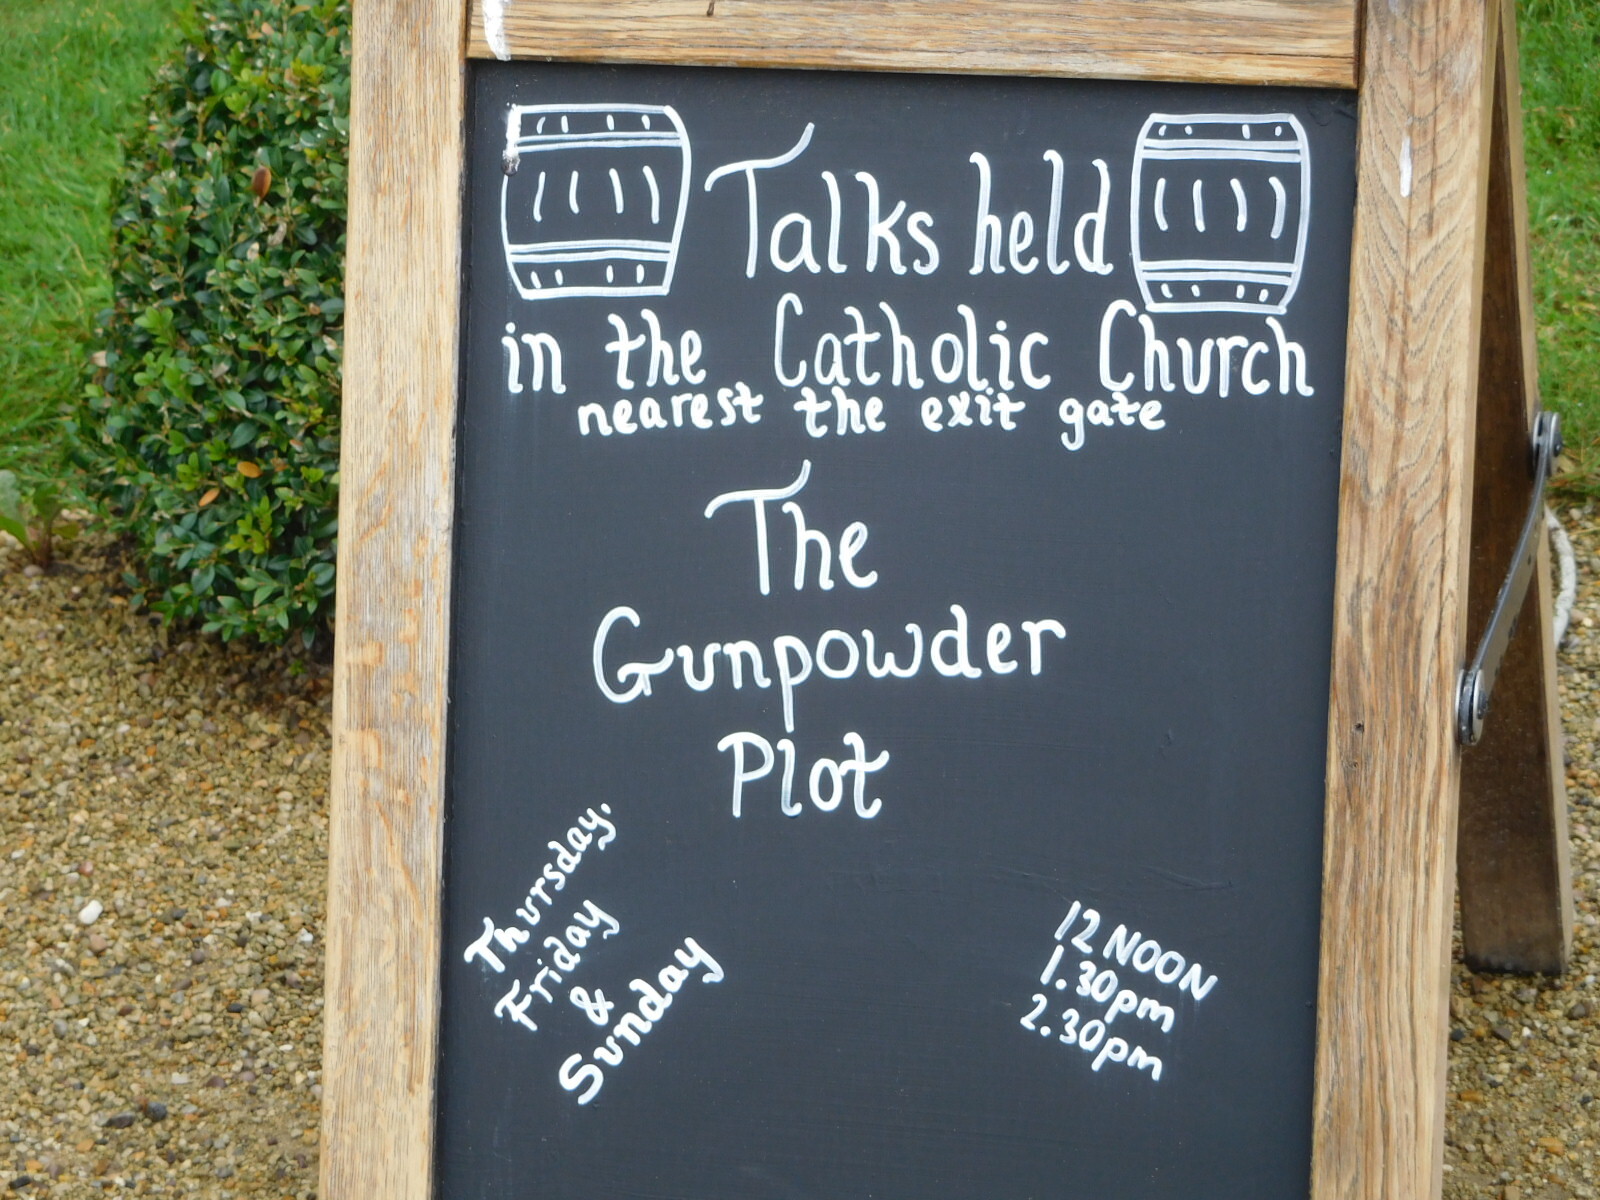 Talks held
in the Catholic Church
nearest the exit gate
The
Gunpowder
Plot
Thursday,
Friday
&
Sunday
12 NOON
1.30pm
2.30pm